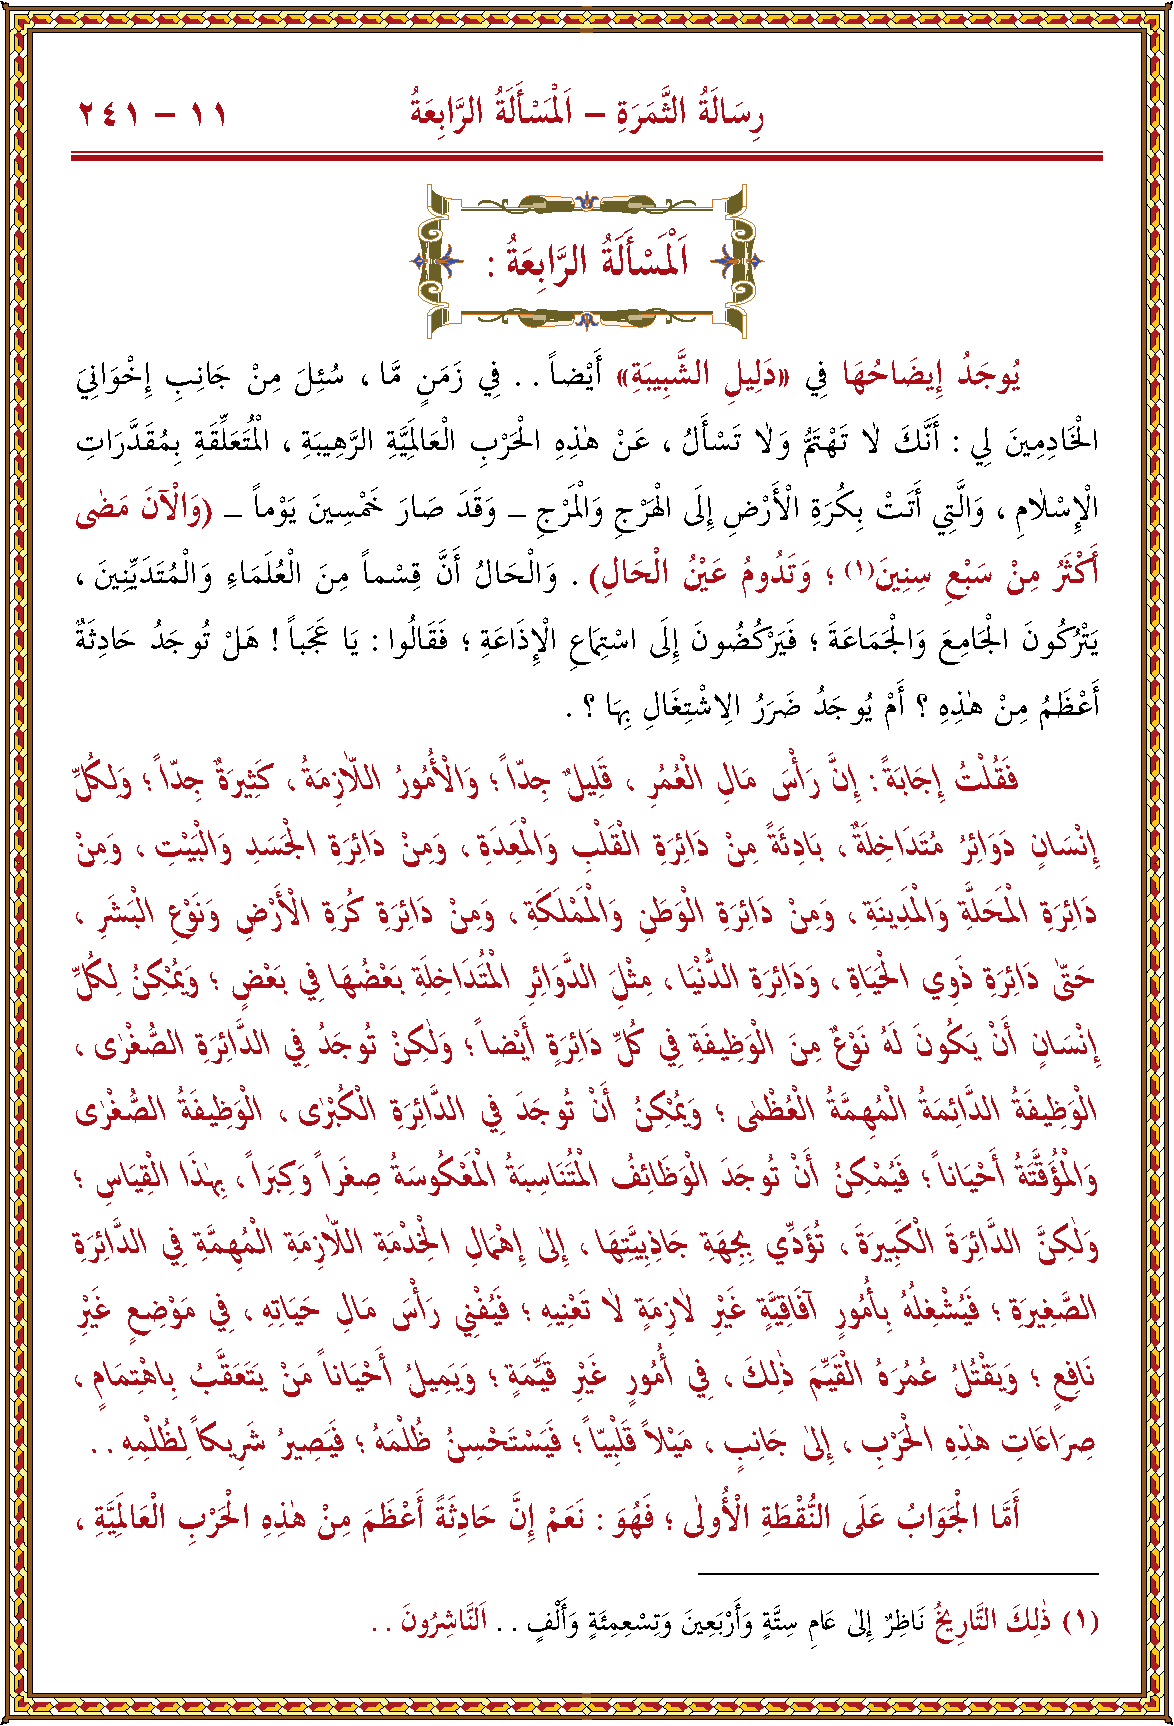 رِسَالَةُ الثَّمَرَةِ – اَلْمَسْأَلَةُ الرَّابِعَةُ ١١ – ٢٤١
اَلْمَسْأَلَةُ الرَّابِعَةُ :
يُوجَدُ إِيضَاحُهَا فِي «دَلِيلِ الشَّبِيبَةِ» أَيْضاً . . فِي زَمَنٍ مَّا ، سُئِلَ مِنْ جَانِبِ إِخْوَانِيَ
الْخَادِمِينَ لِي : أَنَّكَ لاٰ تَهْتَمُّ وَلاٰ تَسْأَلُ ، عَنْ هٰذِهِ الْحَرْبِ الْعَالَمِيَّةِ الرَّهِيبَةِ ، الْمُتَعَلِّقَةِ بِمُقَدَّرَاتِ
الْإِسْلاٰمِ ، وَالَّتِي أَتَتْ بِكُرَةِ الْأَرْضِ إِلَى الْهَرْجِ وَالْمَرْجِ – وَقَدَ صَارَ خَمْسِينَ يَوْماً – (وَالْآنَ مَضٰى
أَكْثَرُ مِنْ سَبْعِ سِنِينَ(١) ؛ وَتَدُومُ عَيْنُ الْحَالِ) . وَالْحَالُ أَنَّ قِسْماً مِنَ الْعُلَمَاءِ وَالْمُتَدَيِّنِينَ ،
يَتْرُكُونَ الْجَامِعَ وَالْجَمَاعَةَ ؛ فَيَرْكُضُونَ إِلَى اسْتِمَاعِ الْإِذَاعَةِ ؛ فَقَالُوا : يَا عَجَباً ! هَلْ تُوجَدُ حَادِثَةٌ
أَعْظَمُ مِنْ هٰذِهِ ؟ أَمْ يُوجَدُ ضَرَرُ الاِشْتِغَالِ بِهَا ؟ .
فَقُلْتُ إِجَابَةً : إِنَّ رَأْسَ مَالِ الْعُمُرِ ، قَلِيلٌ جِدّاً ؛ وَالْأُمُورُ اللاّٰزِمَةُ ، كَثِيرَةٌ جِدّاً ؛ وَلِكُلِّ
إِنْسَانٍ دَوَائِرُ مُتَدَاخِلَةٌ ، بَادِئَةً مِنْ دَائِرَةِ الْقَلْبِ وَالْمَعِدَةِ ، وَمِنْ دَائِرَةِ الْجَسَدِ وَالْبَيْتِ ، وَمِنْ
دَائِرَةِ الْمَحَلَّةِ وَالْمَدِينَةِ ، وَمِنْ دَائِرَةِ الْوَطَنِ وَالْمَمْلَكَةِ ، وَمِنْ دَائِرَةِ كُرَةِ الْأَرْضِ وَنَوْعِ الْبَشَرِ ،
حَتّٰى دَائِرَةِ ذَوِي الْحَيَاةِ ، وَدَائِرَةِ الدُّنْيَا ، مِثْلَ الدَّوَائِرِ الْمُتَدَاخِلَةِ بَعْضُهَا فِي بَعْضٍ ؛ وَيُمْكِنُ لِكُلِّ
إِنْسَانٍ أَنْ يَكُونَ لَهُ نَوْعٌ مِنَ الْوَظِيفَةِ فِي كُلِّ دَائِرَةٍ أَيْضاً ؛ وَلٰكِنْ تُوجَدُ فِي الدَّائِرَةِ الصُّغْرٰى ،
الْوَظِيفَةُ الدَّائِمَةُ الْمُهِمَّةُ الْعُظْمٰى ؛ وَيُمْكِنُ أَنْ تُوجَدَ فِي الدَّائِرَةِ الْكُبْرٰى ، الْوَظِيفَةُ الصُّغْرٰى
وَالْمُؤَقَّتَةُ أَحْيَاناً ؛ فَيُمْكِنُ أَنْ تُوجَدَ الْوَظَائِفُ الْمُتَنَاسِبَةُ الْمَعْكُوسَةُ صِغَراً وَكِبَراً ، بِهٰذَا الْقِيَاسِ ؛
وَلٰكِنَّ الدَّائِرَةَ الْكَبِيرَةَ ، تُؤَدِّي بِجِهَةِ جَاذِبِيَّتِهَا ، إِلٰى إِهْمَالِ الْخِدْمَةِ اللاّٰزِمَةِ الْمُهِمَّةِ فِي الدَّائِرَةِ
الصَّغِيرَةِ ؛ فَيُشْغِلُهُ بِأُمُورٍ آفَاقِيَّةٍ غَيْرِ لاٰزِمَةٍ لاٰ تَعْنِيهِ ؛ فَيُفْنِي رَأْسَ مَالِ حَيَاتِهِ ، فِي مَوْضِعٍ غَيْرِ
نَافِعٍ ؛ وَيَقْتُلُ عُمُرَهُ الْقَيِّمَ ذٰلِكَ ، فِي أُمُورٍ غَيْرِ قَيِّمَةٍ ؛ وَيَمِيلُ أَحْيَاناً مَنْ يَتَعَقَّبُ بِاهْتِمَامٍ ،
صِرَاعَاتِ هٰذِهِ الْحَرْبِ ، إِلٰى جَانِبٍ ، مَيْلاً قَلْبِيّاً ؛ فَيَسْتَحْسِنُ ظُلْمَهُ ؛ فَيَصِيرُ شَرِيكاً لِظُلْمِهِ . .
أَمَّا الْجَوَابُ عَلَى النُّقْطَةِ الْأُولٰى ؛ فَهُوَ : نَعَمْ إِنَّ حَادِثَةً أَعْظَمَ مِنْ هٰذِهِ الْحَرْبِ الْعَالَمِيَّةِ ،
(١) ذٰلِكَ التَّارِيخُ نَاظِرٌ إِلٰى عَامِ سِتَّةٍ وَأَرْبَعِينَ وَتِسْعِمِئَةٍ وَأَلْفٍ . . اَلنَّاشِرُونَ . .